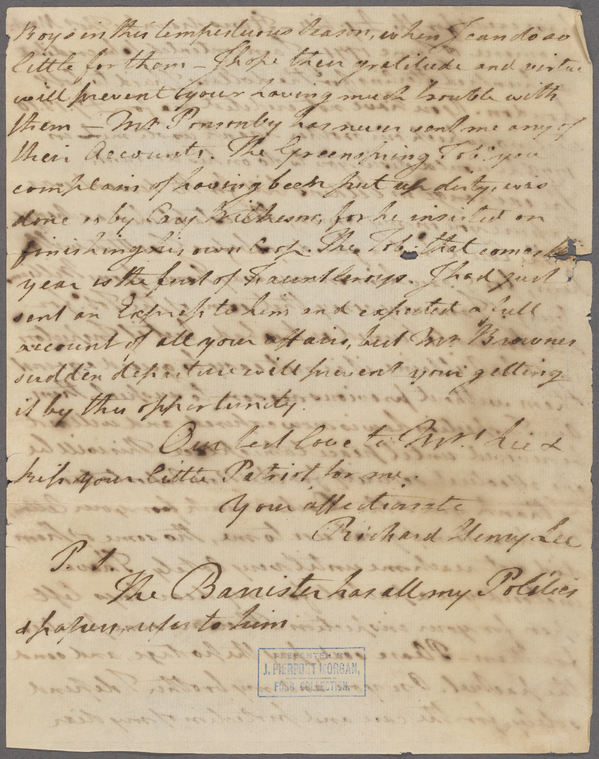 Boys in this tempestuous Season, when I can do so
little for them – I hope their gratitude and virtue
will prevent your having much trouble with
them – Mr. Ponsonby has never sent me any of
their Accounts. The Greenspring Tob: you
complain of having been put up dirty, was
done so by Cary, for he insisted on
finishing his own Crop. The Tob: that comes this
year is the first of Fauntleroys. I had just
sent an Express to him and expected a full
account of all your affairs, but Mr. Brownes
sudden departure will prevent your getting
it by this opportunity.
Our best love to Mrs. Lee &
kiss your little Patriot for me.
Your affectionate
Richard Henry Lee
P.S.
The Banister has all my Politics
& papers, refer to him
PRESENTED BY
J. PIERPONT MORGAN,
FORD COLLECTION.